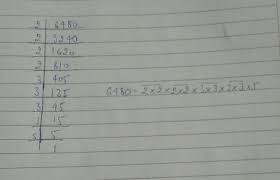 2 | 6480
2 | 3240
2 | 1620
2 | 810
3 | 405
3 | 135
3 | 45
15
5 | 5
1
6480 = 2×2×2×2×3×3×3×3×5